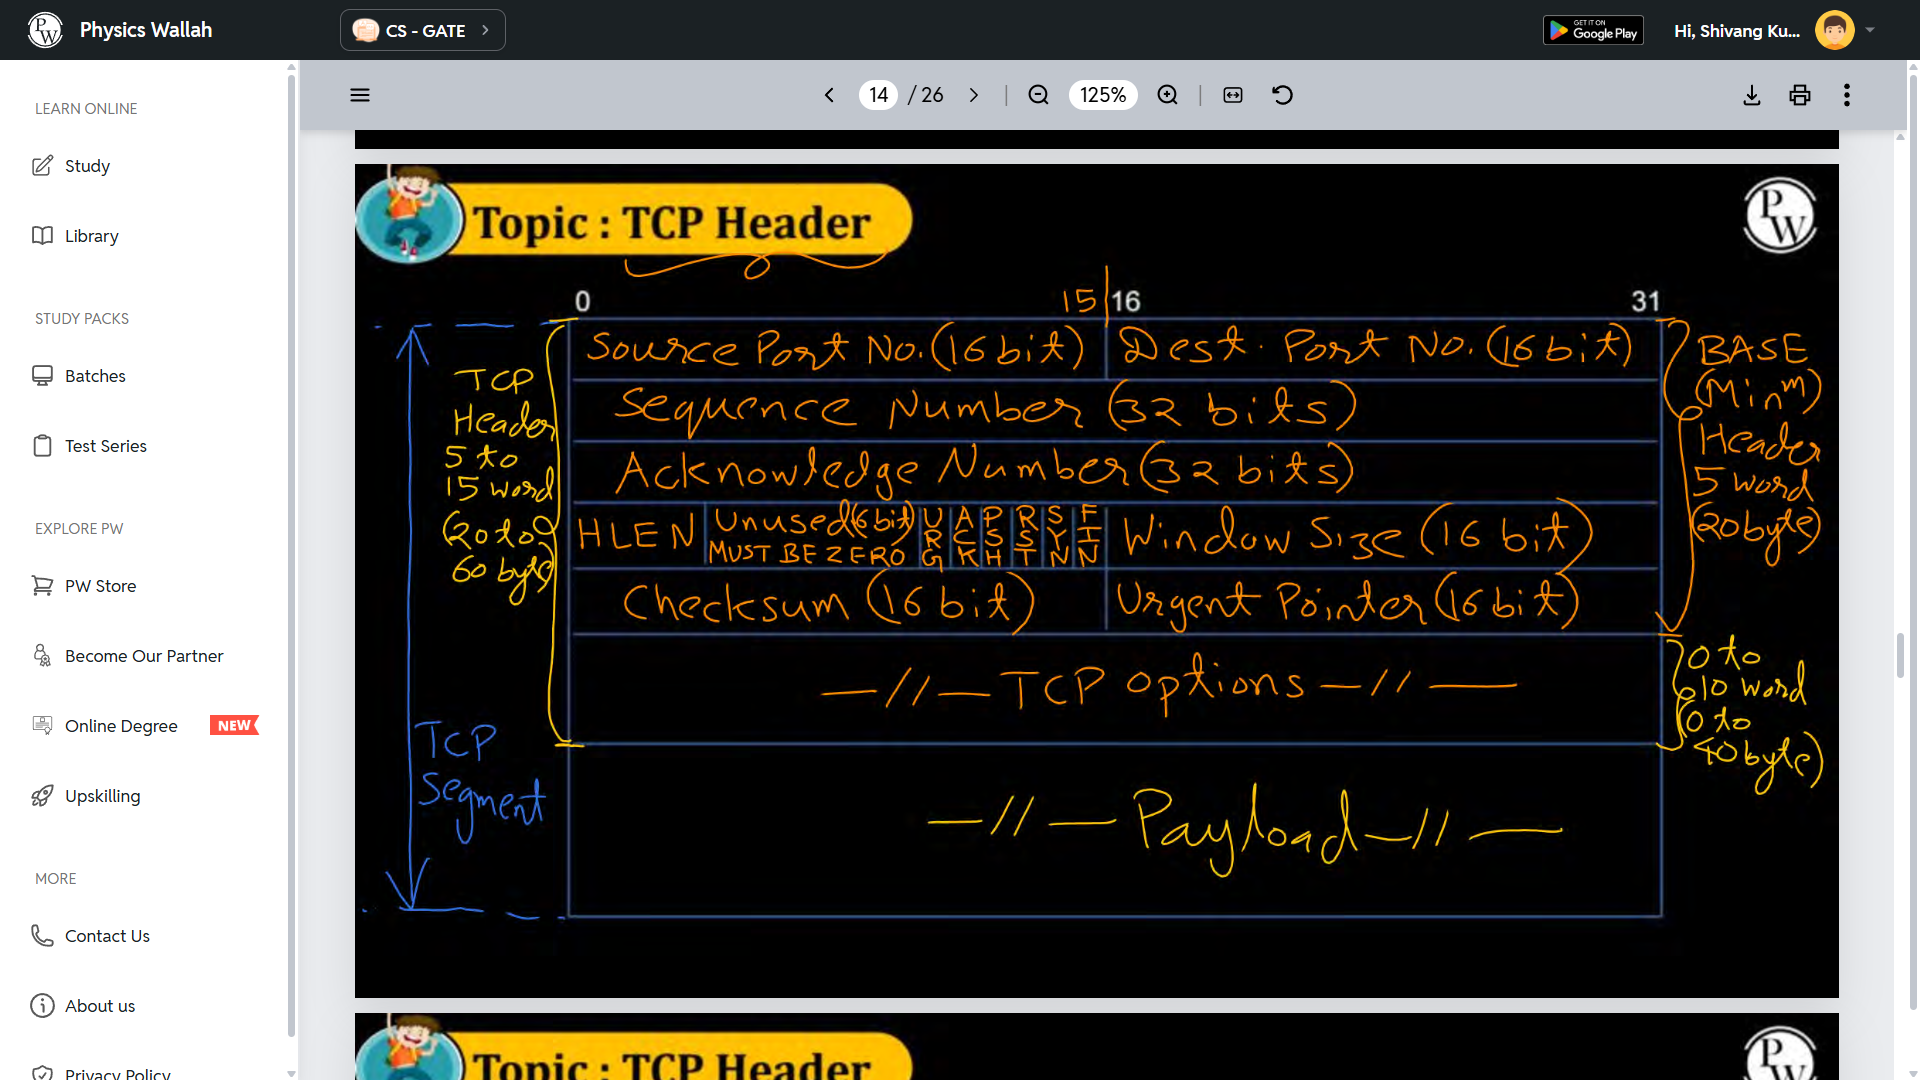 Physics Wallah
CS - GATE
GET IT ON
Google Play
Hi, Shivang Ku...
LEARN ONLINE
Study
Library
STUDY PACKS
Batches
Test Series
EXPLORE PW
PW Store
Become Our Partner
Online Degree
NEW
Upskilling
MORE
Contact Us
About us
Privacy Policy
14 / 26
125%
Topic : TCP Header
PW
0
15
16
31
Source Port No. (16 bit)
Dest. Port No. (16 bit)
Sequence Number (32 bits)
Acknowledge Number (32 bits)
HLEN
Unused (6 bit)
MUST BE ZERO
URG
ACK
PSH
RST
SYN
FIN
Window Size (16 bit)
Checksum (16 bit)
Urgent Pointer (16 bit)
—//— TCP options —//—
—//— Payload —//—
TCP
Header
5 to
15 word
(20 to
60 byte)
TCP
Segment
BASE
(Minm)
Header
5 word
(20 byte)
0 to
10 word
(0 to
40 byte)
Topic : TCP Header
PW